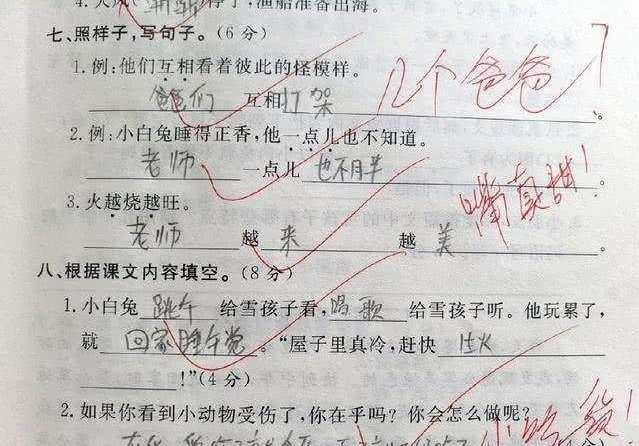 七、照样子,写句子。(6分)
1.例:他们互相看着彼此的怪模样。
爸爸们 互相打架。
几个爸爸?
2.例:小白兔睡得正香,他一点儿也不知道。
老师 一点儿 也不月半。
嘴真甜!
3.火越烧越旺。
老师 越 来 越 美。
八、根据课文内容填空。(8分)
1.小白兔 跳午 给雪孩子看,唱歌 给雪孩子听。他玩累了,
就 回家睡午觉。“屋子里真冷,赶快
!”(4分)
2.如果你看到小动物受伤了,你在乎吗?你会怎么做呢?